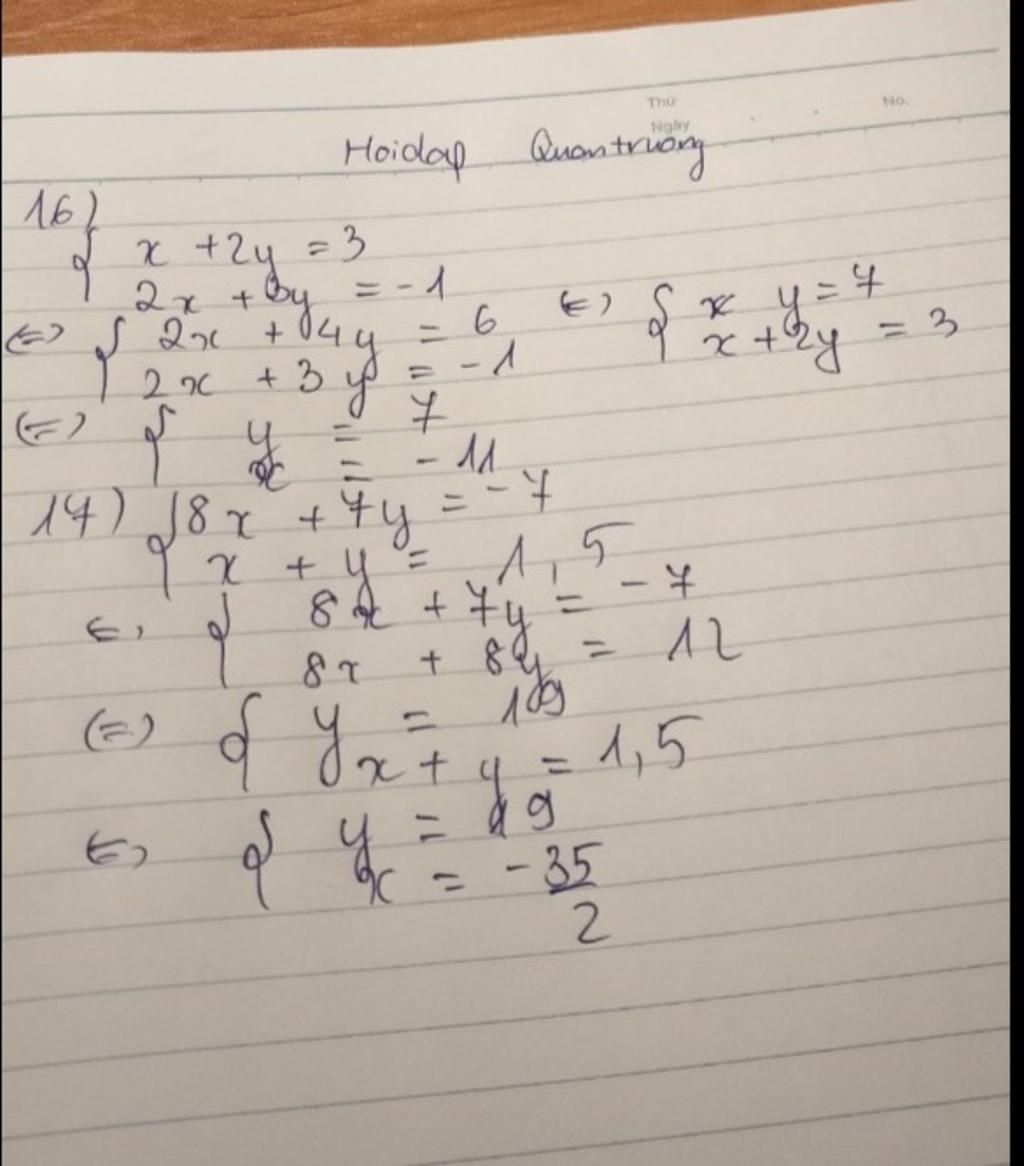 Thứ
No.
Ngày
Hoidap Quantruong
16)
{ x + 2y = 3
2x + 3y = -1
<=> { 2x + 4y = 6
2x + 3y = -1
<=> { x y = 7
x + 2y = 3
<=> { y = 7
x = -11
17) { 8x + 7y = -7
x + y = 1,5
<=> { 8x + 7y = -7
8x + 8y = 12
<=> { y = 19
x + y = 1,5
<=> { y = 19
x = -35/2